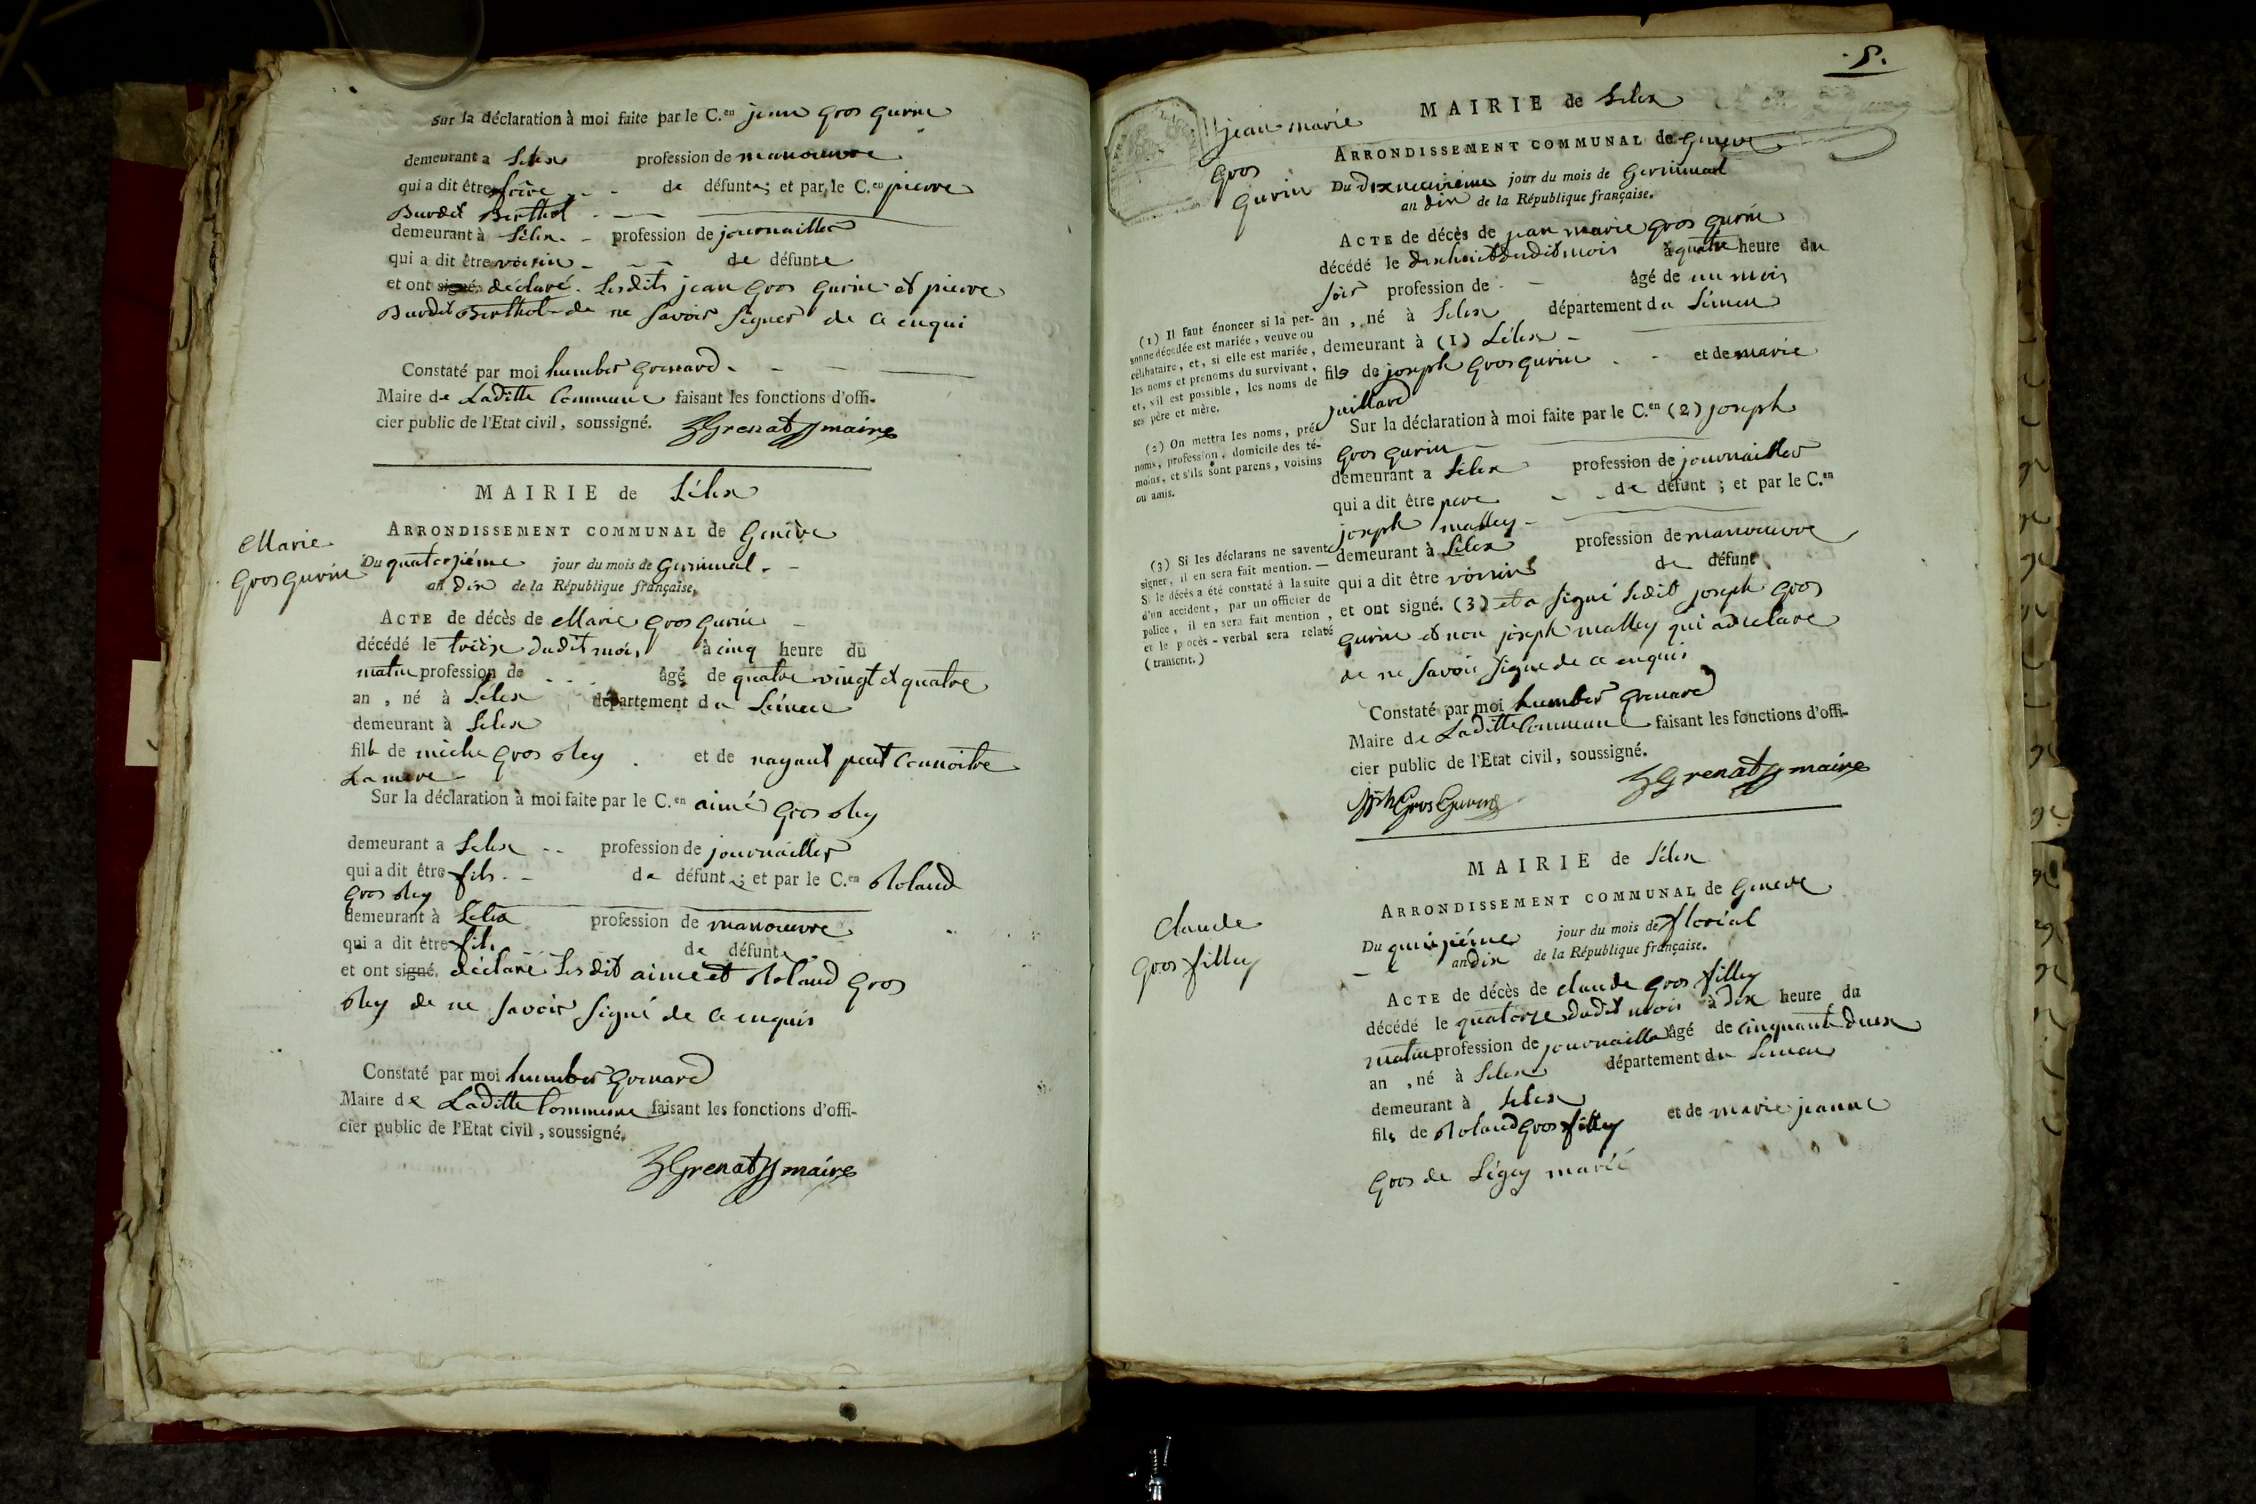 Sur la déclaration à moi faite par le C.en jean gros gurin
demeurant a Lélex profession de manoeuvre
qui a dit être frère de défunte ; et par le C.en pierre
Burdet Berthol
demeurant à Lélex profession de journaillier
qui a dit être voisin de défunte
et ont signé déclaré Lesdits jean gros gurin et pierre
Burdet Berthol de ne savoir signer de ce enqui
Constaté par moi humber grenard
Maire de Laditte Commune faisant les fonctions d'offi-
cier public de l'Etat civil, soussigné.
hGrenat maire
MAIRIE de Lélex
ARRONDISSEMENT COMMUNAL de Genève
Marie
gros gurin
Du quatorziéme jour du mois de Germinal
an dix de la République française.
ACTE de décès de Marie gros gurin
décédé le treize dudit mois à cinq heure du
matin profession de âgé de quatre vingt et quatre
an , né à Lelex département du Léman
demeurant à Lelex
fille de miche gros bley et de nayant peut Connoitre
La mere
Sur la déclaration à moi faite par le C.en aimé gros bley
demeurant a Lelex profession de journaillier
qui a dit être fils de défunte ; et par le C.en Roland
gros bley
demeurant à Lelex profession de manoeuvre
qui a dit être fils de défunte
et ont signé. déclaré Lesdit aimé et Roland gros
bley de ne savoir signé de ce enquis
Constaté par moi humber grenard
Maire de Laditte Commune faisant les fonctions d'offi-
cier public de l'Etat civil, soussigné.
hGrenat maire
.5.
MAIRIE de Lelex
jean marie
gros
gurin
ARRONDISSEMENT COMMUNAL de Geneve
Du dix neuviéme jour du mois de Germinal
an dix de la République française.
ACTE de décès de jean marie gros gurin
décédé le dix huit dudit mois à quatre heure du
soir profession de âgé de un mois
an , né à Lelex département du Léman
demeurant à (1) Lélex
fils de joseph gros gurin et de marie
juillard
(1) Il faut énoncer si la per-
sonne décédée est mariée, veuve ou
célibataire, et, si elle est mariée,
les noms et prénoms du survivant,
et, s'il est possible, les noms de
ses père et mère.
Sur la déclaration à moi faite par le C.en (2) joseph
gros gurin
demeurant a Lelex profession de journaillier
qui a dit être pere de défunt ; et par le C.en
joseph malley
(2) On mettra les noms, pré-
noms, profession, domicile des té-
moins, et s'ils sont parens, voisins
ou amis.
demeurant à Lélex profession de manoeuvre
qui a dit être voisin de défunt
et ont signé. (3) et a signé Ledit joseph gros
gurin et non joseph malley qui adeclare
de ne savoir signe de ce enquis
(3) Si les déclarans ne savent
signer, il en sera fait mention. —
Si le décès a été constaté à la suite
d'un accident, par un officier de
police, il en sera fait mention,
et le procès-verbal sera relaté
(transcrit.)
Constaté par moi humber grenard
Maire de Laditte Commune faisant les fonctions d'offi-
cier public de l'Etat civil, soussigné.
hGrenat maire
Gros Gurin
MAIRIE de Lélex
ARRONDISSEMENT COMMUNAL de Geneve
Claude
gros filley
Du quinziéme jour du mois de floréal
an dix de la République française.
ACTE de décès de claude gros filley
décédé le quatorze dudit mois à dix heure du
matin profession de journaillier âgé de cinquante deux
an , né à Lelex département du Léman
demeurant à Lelex
fils de Roland gros filley et de marie jeanne
gros de Légey marié